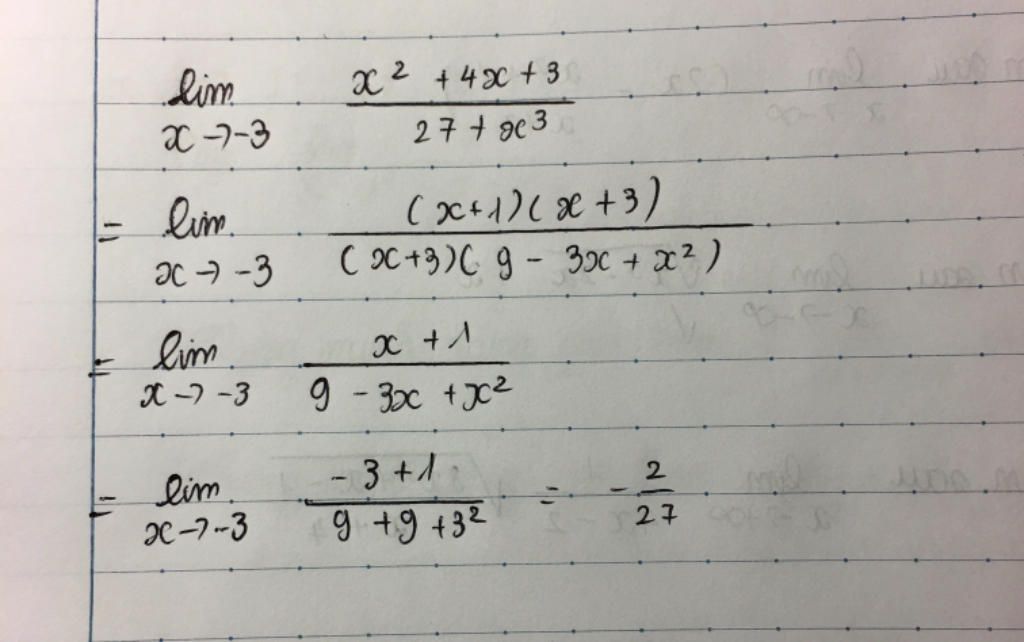 lim x→-3 (x² + 4x + 3)/(27 + x³)
= lim x→-3 ((x+1)(x+3))/((x+3)(9 - 3x + x²))
= lim x→-3 (x + 1)/(9 - 3x + x²)
= lim x→-3 (-3 + 1)/(9 + 9 + 3²) = -2/27